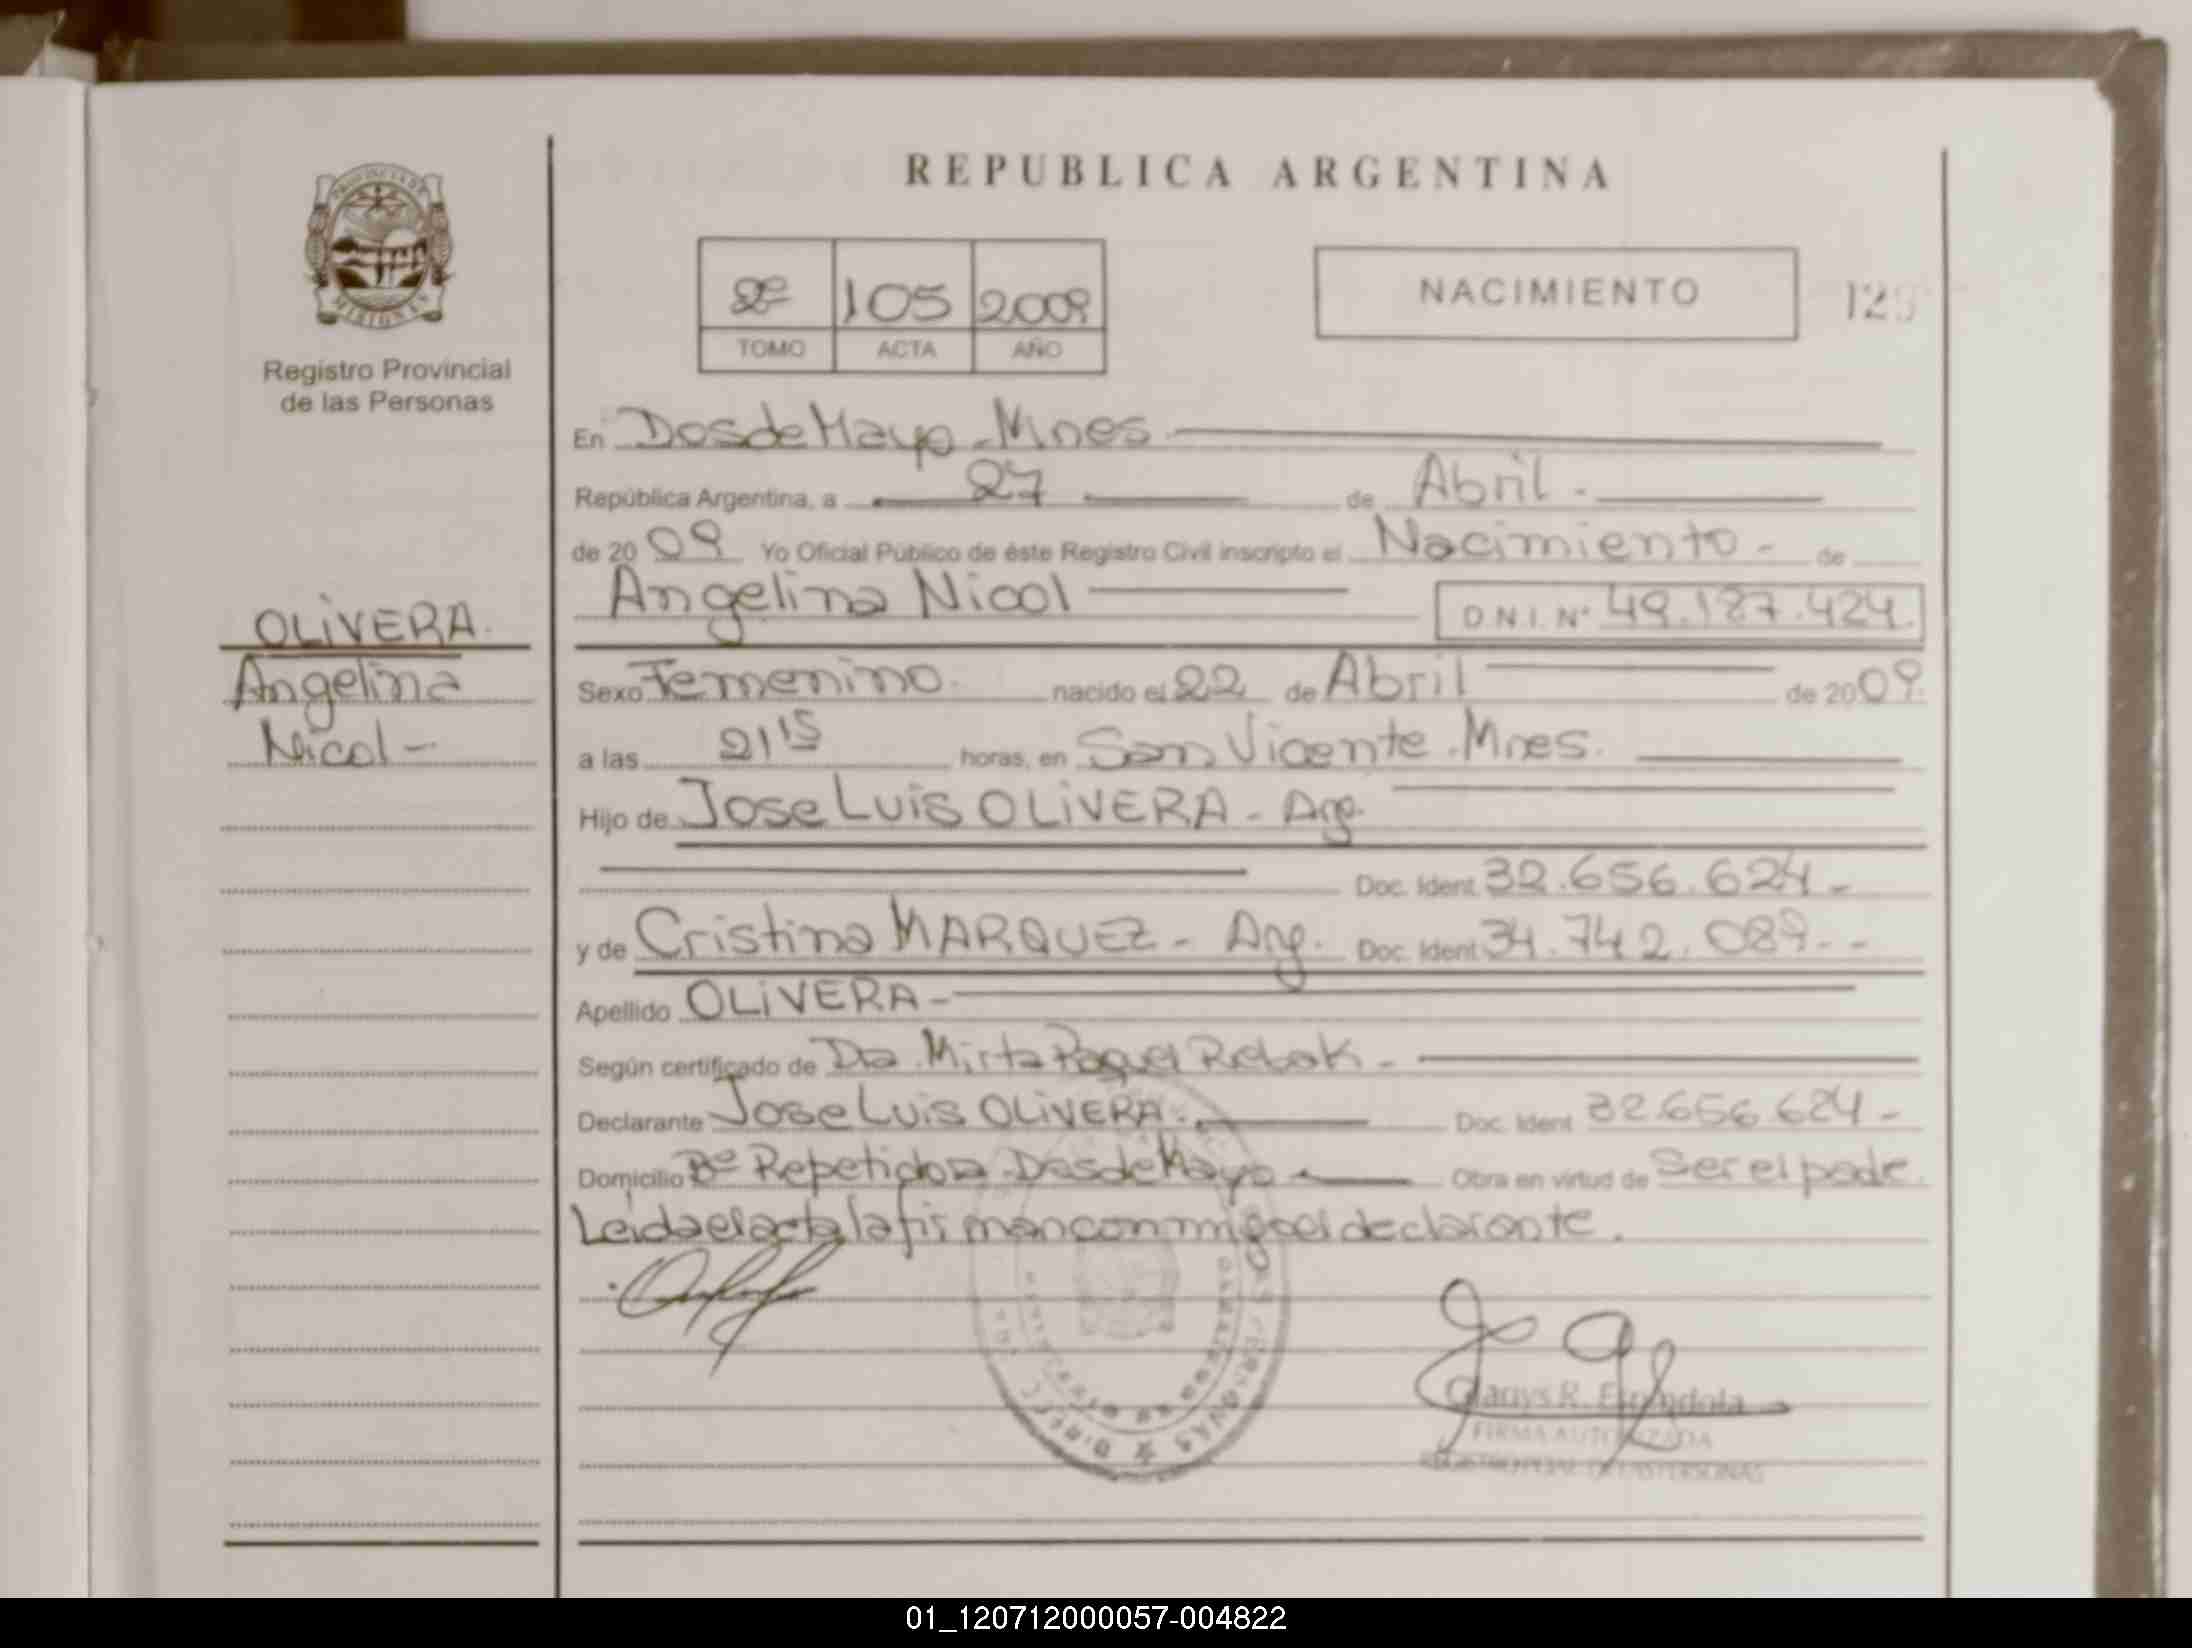 REPUBLICA ARGENTINA
PROVINCIA DE
MISIONES
Registro Provincial
de las Personas
2º 105 2009
TOMO ACTA AÑO
NACIMIENTO
129
En Dos de Mayo - Mnes
República Argentina, a 27 de Abril -
de 2009 Yo Oficial Público de éste Registro Civil inscripto el Nacimiento - de
Angelina Nicol D.N.I. Nº 49.187.424.
OLiVERA.
Angelina
Nicol -
Sexo Femenino. nacido el 22 de Abril de 2009.
a las 21 15 horas, en San Vicente. Mnes.
Hijo de Jose Luis OLiVERA - Arg.
Doc. Ident. 32.656.624 -
y de Cristina MARQUEZ - Arg. Doc. Ident 34.742.089 - -
Apellido OLiVERA -
Según certificado de Dra. Mirta Raquel Rebak -
Declarante Jose Luis OLiVERA. Doc. Ident 32.656.624 -
Domicilio Bº Repetidora - Dos de Mayo Obra en virtud de Ser el padre.
Leida el acta la firman conmigo el declarante.
Gladys R. Espindola
FIRMA AUTORIZADA
REGISTRO PCIAL. DE LAS PERSONAS
01_120712000057-004822